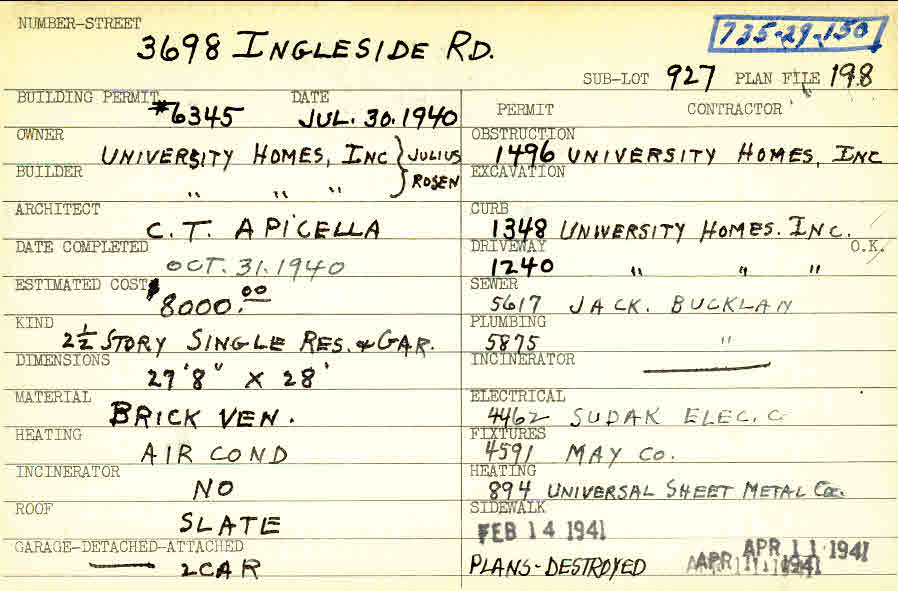 NUMBER-STREET
3698 INGLESIDE RD.
735-29-150
SUB-LOT 927 PLAN FILE 198
BUILDING PERMIT #6345 DATE JUL. 30. 1940
OWNER UNIVERSITY HOMES, INC } JULIUS ROSEN
BUILDER " " "
ARCHITECT C. T. APICELLA
DATE COMPLETED OCT. 31. 1940
ESTIMATED COST $8000.00
KIND 2½ STORY SINGLE RES. & GAR.
DIMENSIONS 27'8" X 28'
MATERIAL BRICK VEN.
HEATING AIR COND
INCINERATOR NO
ROOF SLATE
GARAGE-DETACHED-ATTACHED
— 2CAR
PERMIT CONTRACTOR
OBSTRUCTION 1496 UNIVERSITY HOMES, INC
EXCAVATION
CURB 1348 UNIVERSITY HOMES. INC.
DRIVEWAY 1240 " " " O.K.
SEWER 5617 JACK. BUCKLAN
PLUMBING 5875 "
INCINERATOR —
ELECTRICAL 4462 SUDAK ELEC. C
FIXTURES 4591 MAY CO.
HEATING 894 UNIVERSAL SHEET METAL Co.
SIDEWALK
FEB 14 1941
PLANS-DESTROYED APR 11 1941 APR 11 1941